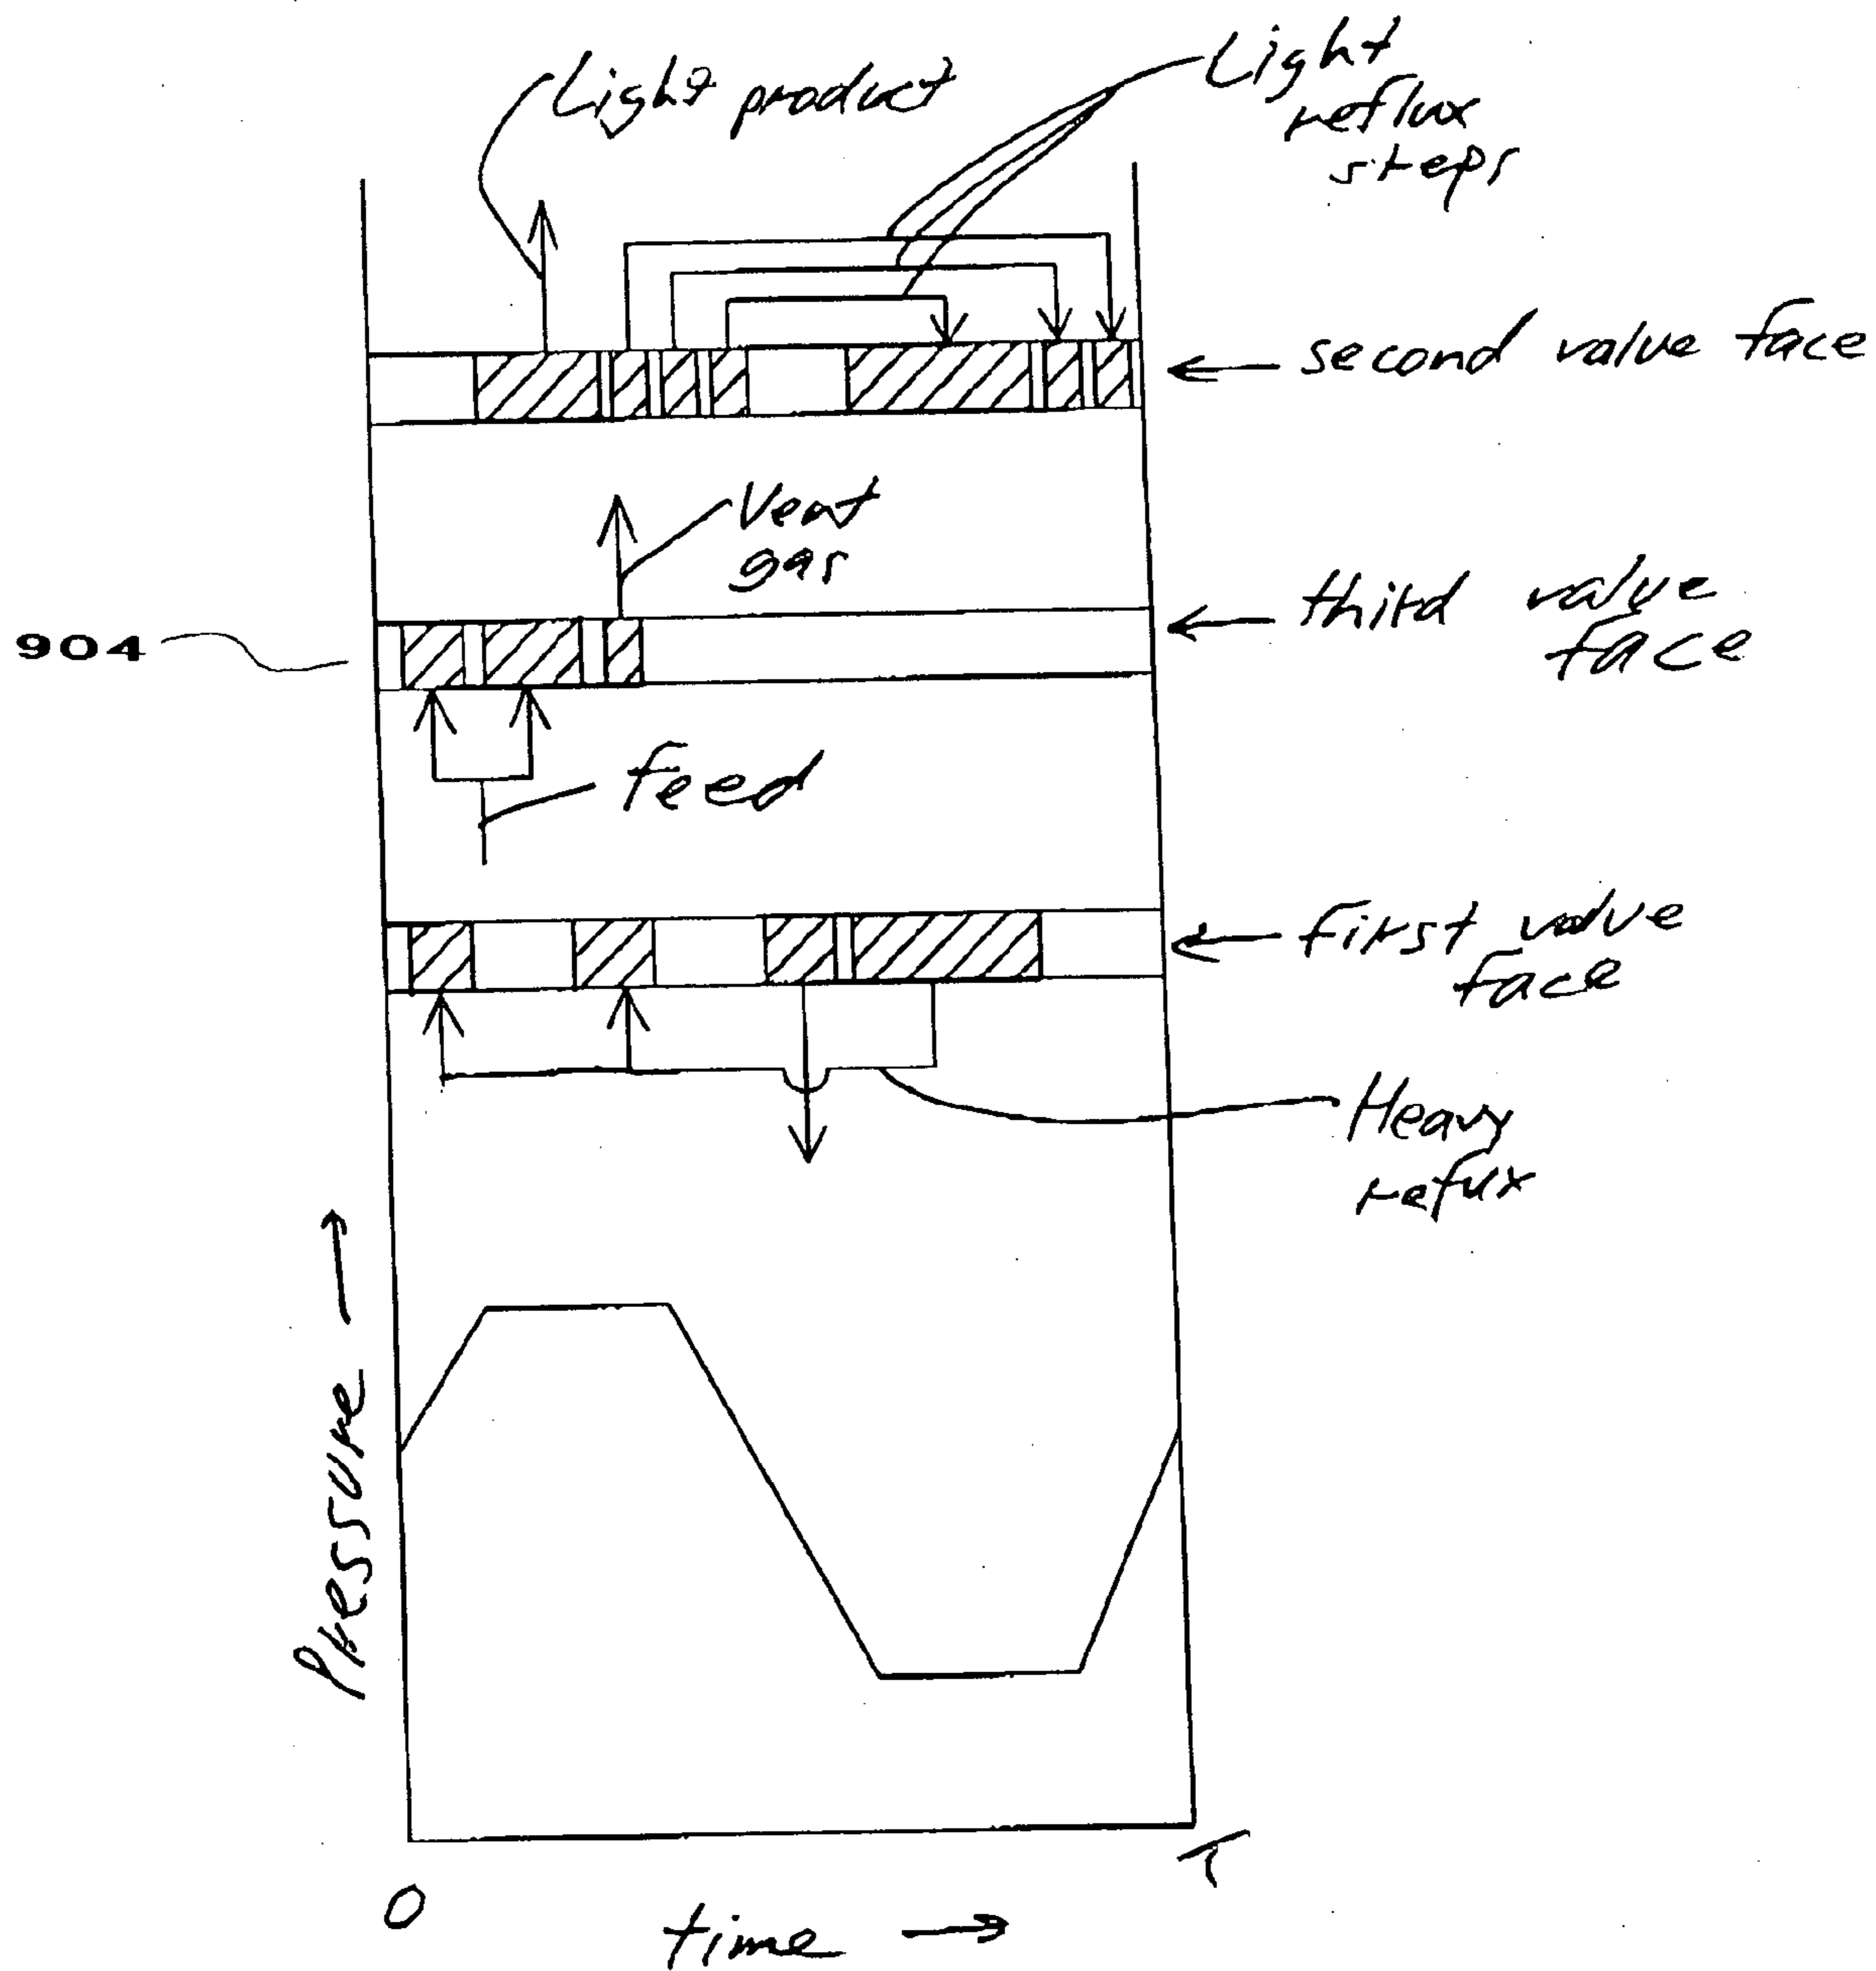 Light product
Light
reflux
steps
second valve face
Vent
gas
904
third valve
face
feed
first valve
face
Heavy
refux
Pressure
0
T
time